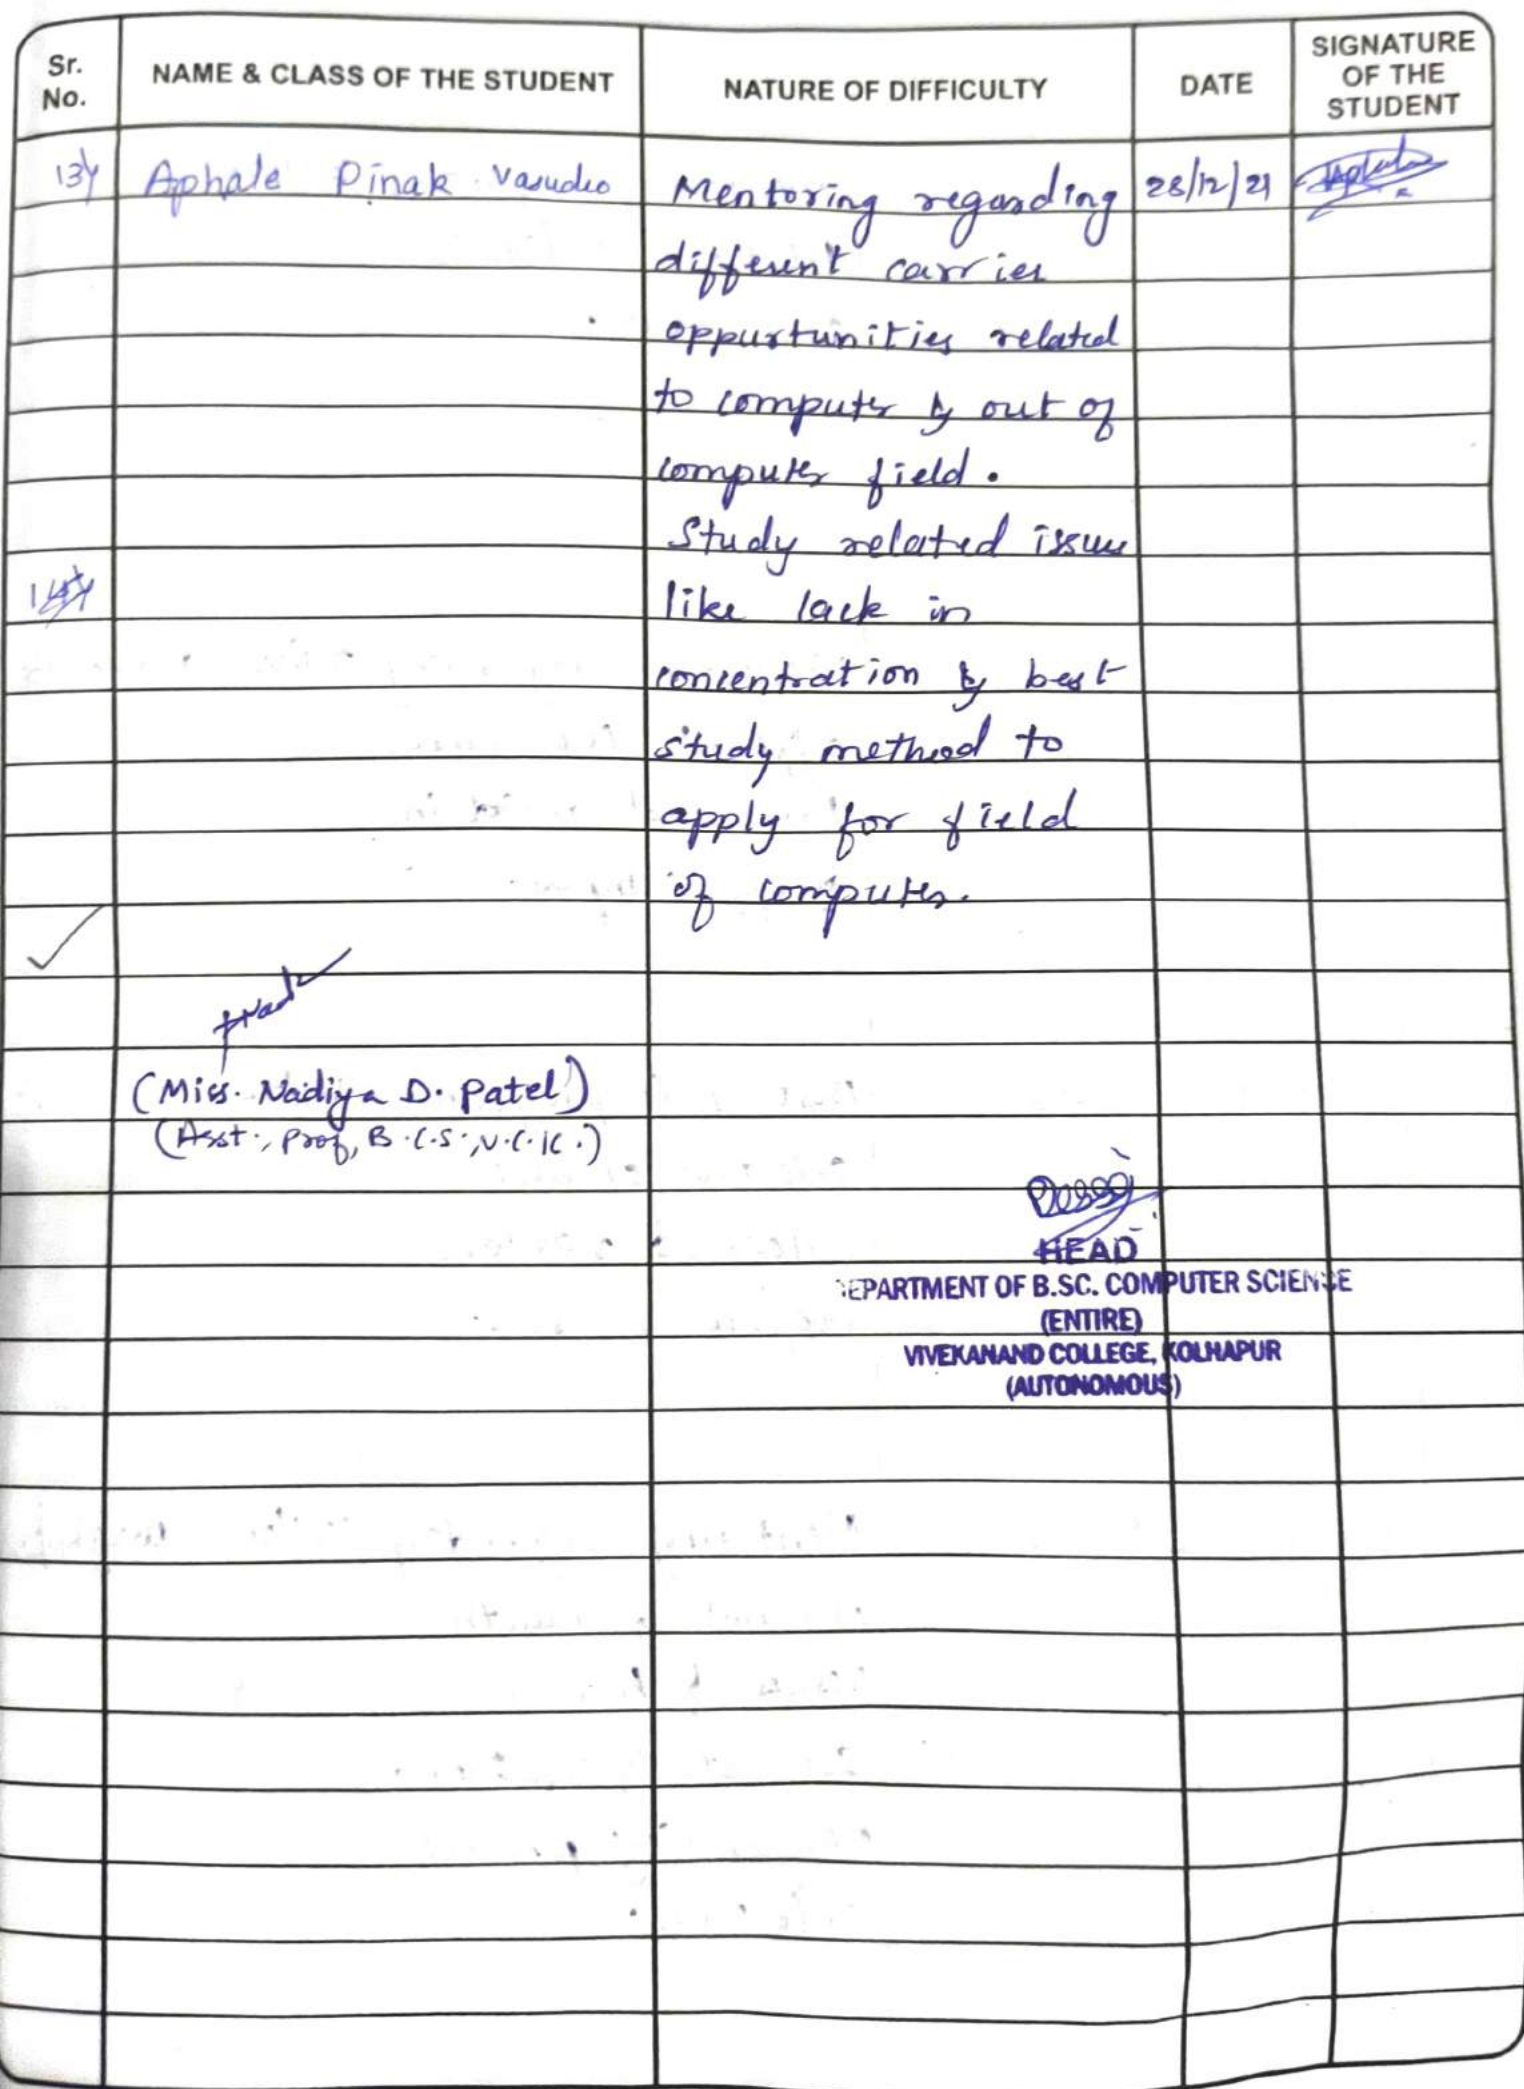 Sr. No.
NAME & CLASS OF THE STUDENT
NATURE OF DIFFICULTY
DATE
SIGNATURE OF THE STUDENT
13) Aphale Pinak Vasudeo Mentoring regarding 28/12/21
different carrier
oppurtunities related
to computer & out of
computer field.
Study related issue
like lack in
concentration & best
study method to
apply for field
of computer.
(Miss. Nadiya D. Patel)
(Asst., Prof, B.C.S., V.C.K.)
HEAD
DEPARTMENT OF B.SC. COMPUTER SCIENCE
(ENTIRE)
VIVEKANAND COLLEGE, KOLHAPUR
(AUTONOMOUS)